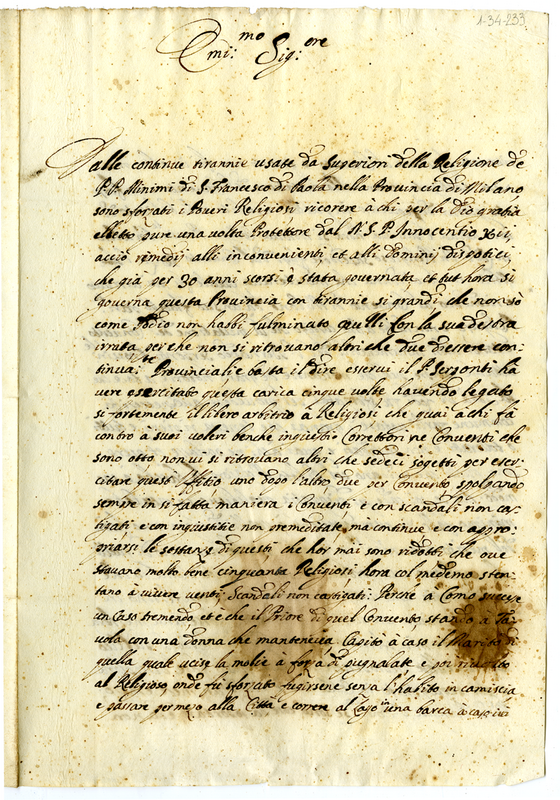 1-34-233
Emi:mo Sig:ore
Dalle continue tirannie usate da Superiori della Religione de
P.P. Minimi di S. Francesco di Paola nella Provincia di Milano
sono sforsati i Poveri Religiosi ricorere à chi per la Dio gratia
eletto pure una volta Protettore dal N. S. P. Innocentio
acciò remedij alli inconvenienti et alli Dominij dispotici,
che già per 30 anni scorsi è stata governata et hora si
governa questa Provincia con tirannie si grandi che non sò
come Iddio non habbi fulminato quelli con la sua destra
perche non si ritrovano altri che due d'essere con-
tinua:te Provinciali e basta il dire esservi il P. Serponti ha
vere esercitato questa carica cinque volte havendo legato
si fortemente il libero arbitrio à Religiosi che guai à chi fà
contro à suoi voleri benche ingiusti. Correttori ne Conventi che
sono otto non vi si ritrovano altri che sedeci sogetti per eser-
citare quest'Offitio uno dopo l'altro, due per Convento spolpando
sempre in si fatta maniera i Conventi e con scandali non cas-
tigati e con ingiustitie non premeditate ma continue e con appro-
priarsi le sostanze di questi che hor mai sono ridotti che ove
stavano molto bene cinquanta Religiosi hora col medemo sten-
tano à vivere venti. Scandali non castigati: Perche à Como successe
un Caso tremendo et è che il Priore di quel Convento stando à Ta-
vola con una donna che manteneva Capitò à caso il Marito di
quella quale ucise la molie à forza di pugnalate e poi rivolto
al Religioso onde fù sforsato fugirsene senza l'habito in camiscia
e passare per mezo alla Città e correre al Lago in una barca à caso ivi